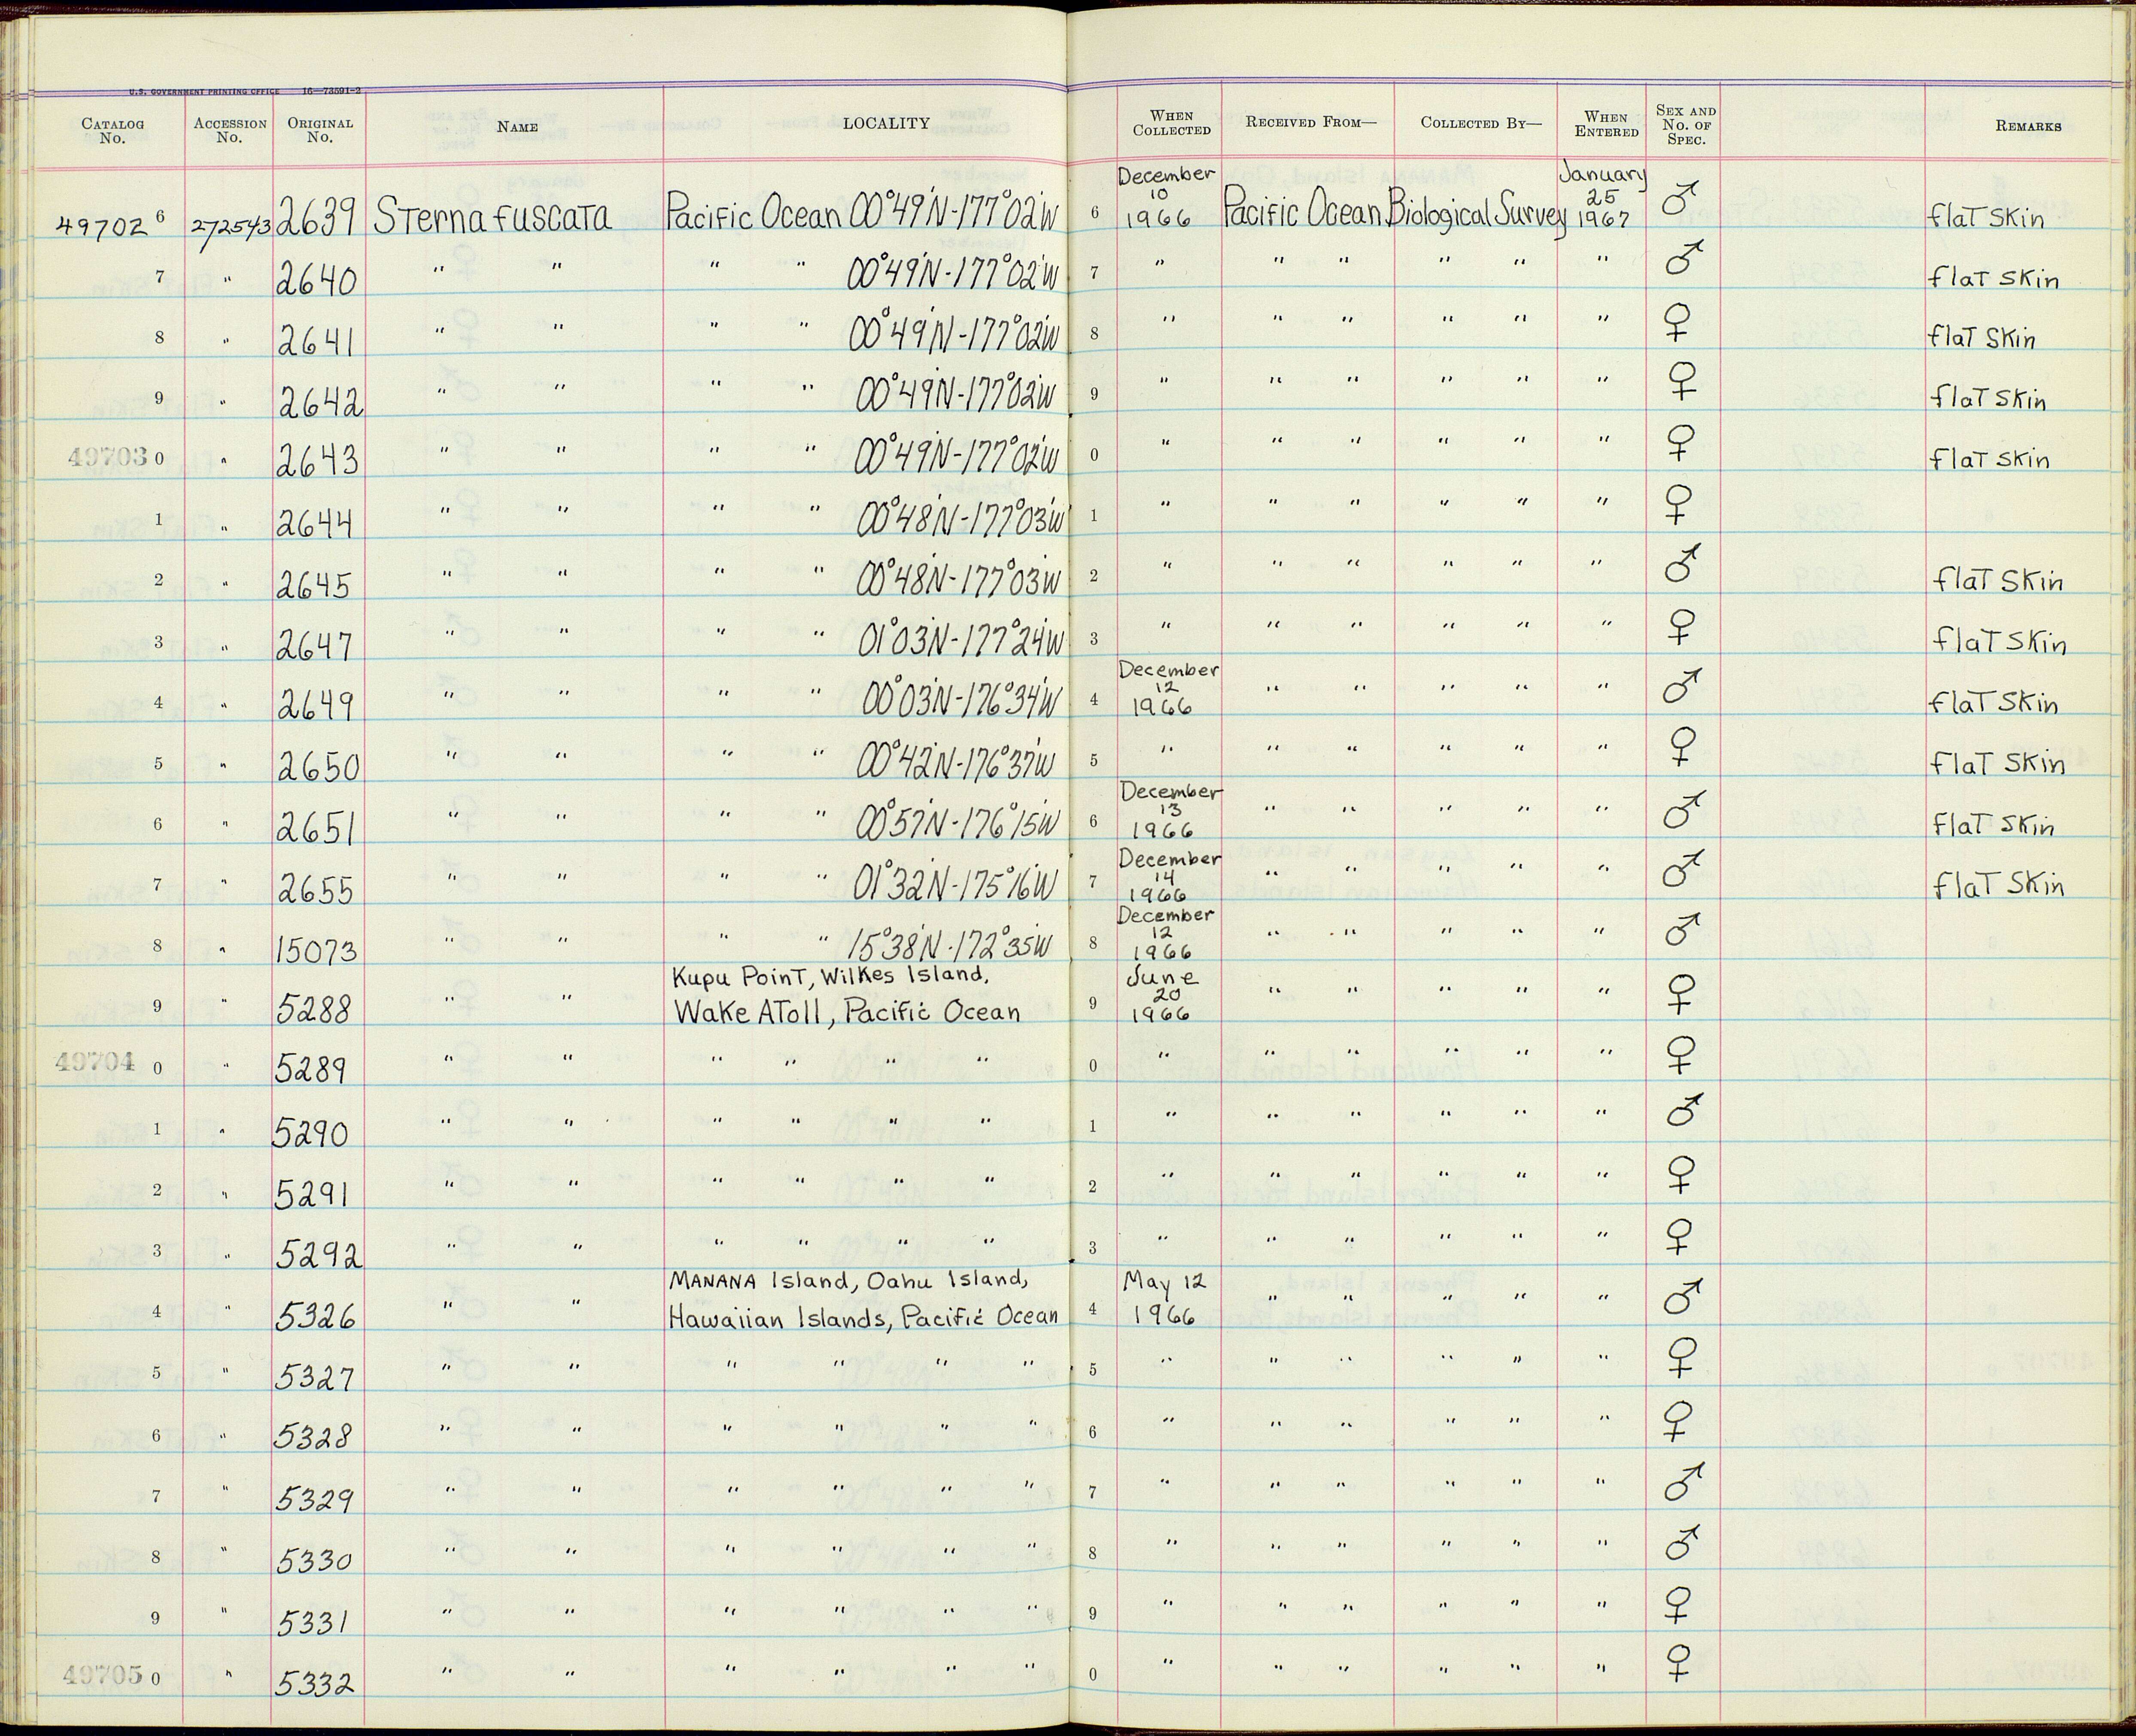 U.S. GOVERNMENT PRINTING OFFICE 16—73591-2
CATALOG No. ACCESSION No. ORIGINAL No. NAME LOCALITY WHEN COLLECTED RECEIVED FROM— COLLECTED BY— WHEN ENTERED SEX AND No. OF SPEC. REMARKS
497026 272543 2639 Sterna fuscata Pacific Ocean 00°49'N-177°02'W 6 December 10 1966 Pacific Ocean Biological Survey January 25 1967 ♂ flat skin
7 " 2640 " " " " 00°49'N-177°02'W 7 " " " " " " ♂ flat skin
8 " 2641 " " " " 00°49'N-177°02'W 8 " " " " " " ♀ flat skin
9 " 2642 " " " " 00°49'N-177°02'W 9 " " " " " " ♀ flat skin
497030 " 2643 " " " " 00°49'N-177°02'W 0 " " " " " " ♀ flat skin
1 " 2644 " " " " 00°48'N-177°03'W 1 " " " " " " ♀
2 " 2645 " " " " 00°48'N-177°03'W 2 " " " " " " ♂ flat skin
3 " 2647 " " " " 01°03'N-177°24'W 3 " " " " " " ♀ flat skin
4 " 2649 " " " " 00°03'N-176°34'W 4 December 12 1966 " " " " " ♂ flat skin
5 " 2650 " " " " 00°42'N-176°37'W 5 " " " " " " ♀ flat skin
6 " 2651 " " " " 00°57'N-176°15'W 6 December 13 1966 " " " " " ♂ flat skin
7 " 2655 " " " " 01°32'N-175°16'W 7 December 14 1966 " " " " " ♂ flat skin
8 " 15073 " " " " 15°38'N-172°35'W 8 December 12 1966 " " " " " ♂
9 " 5288 " " Kupu Point, Wilkes Island, Wake Atoll, Pacific Ocean 9 June 20 1966 " " " " " ♀
497040 " 5289 " " " " " " 0 " " " " " " ♀
1 " 5290 " " " " " " 1 " " " " " " ♂
2 " 5291 " " " " " " 2 " " " " " " ♀
3 " 5292 " " " " " " 3 " " " " " " ♀
4 " 5326 " " MANANA Island, Oahu Island, Hawaiian Islands, Pacific Ocean 4 May 12 1966 " " " " " ♂
5 " 5327 " " " " " " 5 " " " " " " ♀
6 " 5328 " " " " " " 6 " " " " " " ♀
7 " 5329 " " " " " " 7 " " " " " " ♂
8 " 5330 " " " " " " 8 " " " " " " ♂
9 " 5331 " " " " " " 9 " " " " " " ♀
497050 " 5332 " " " " " " 0 " " " " " " ♀